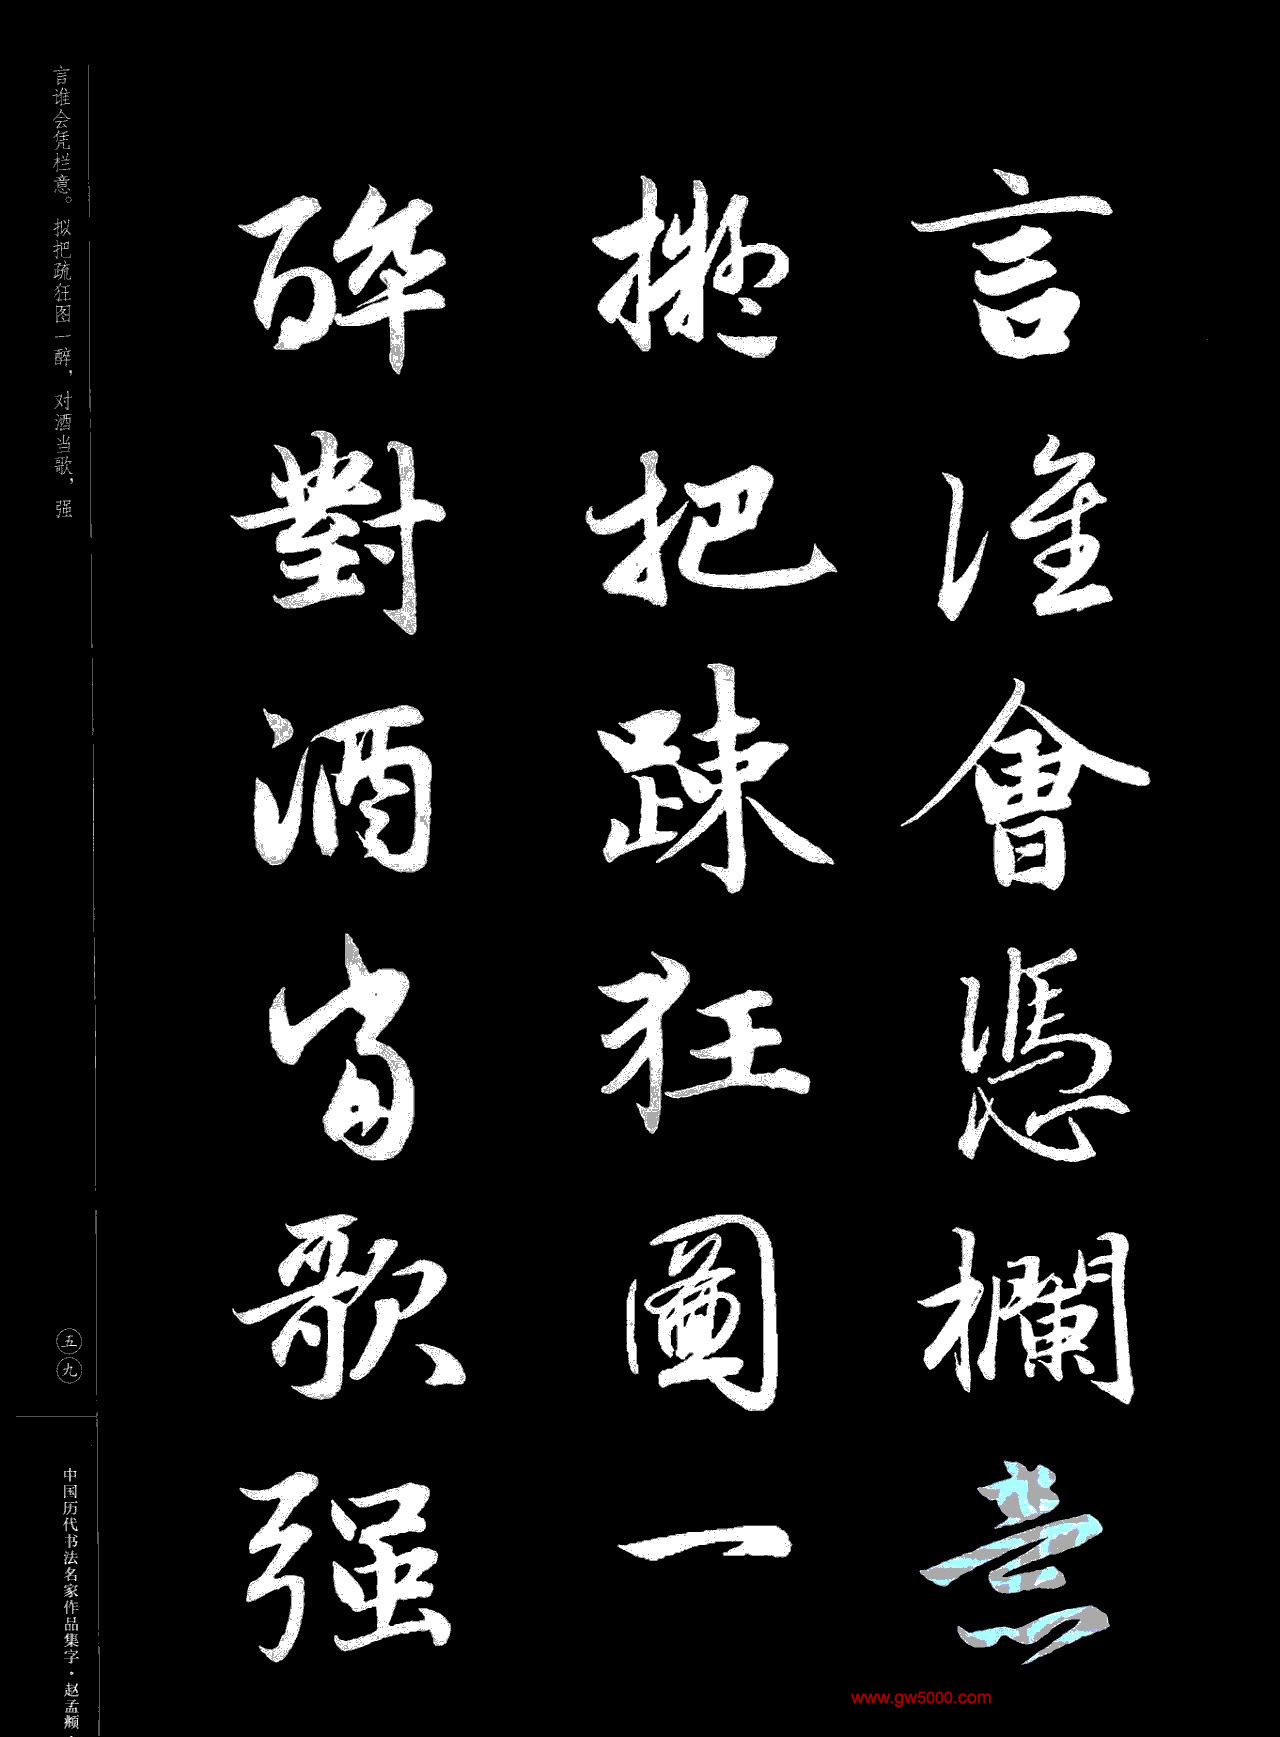 言誰會憑欄意
擬把踈狂圖一
醉對酒當歌强
言谁会凭栏意。拟把疏狂图一醉，对酒当歌，强
五九
中国历代书法名家作品集字·赵孟頫·
www.gw5000.com